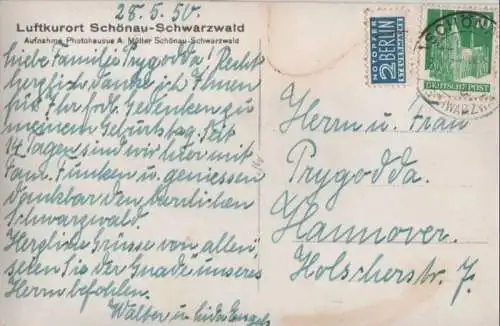 28.5.50.
Luftkurort Schönau-Schwarzwald
Aufnahme Photohaus A. Müller Schönau-Schwarzwald
Liebe Familie Prygodda! Recht
herzlich danke ich Ihnen
für Ihr frdl. Gedenken zu
meinem Geburtstag. Seit
14 Tagen sind wir hier mit
Fam. Funken u. geniessen
dankbar den herrlichen
Schwarzwald.
Herzliche Grüsse von allen,
seien Sie der Gnade unseres
Herrn befohlen.
Walter u.
NOTOPFER
2 BERLIN
STEUERMARKE
DEUTSCHE POST
SCHÖNAU
Herrn u. Frau
Prygodda.
Hannover.
Holscherstr. 7.